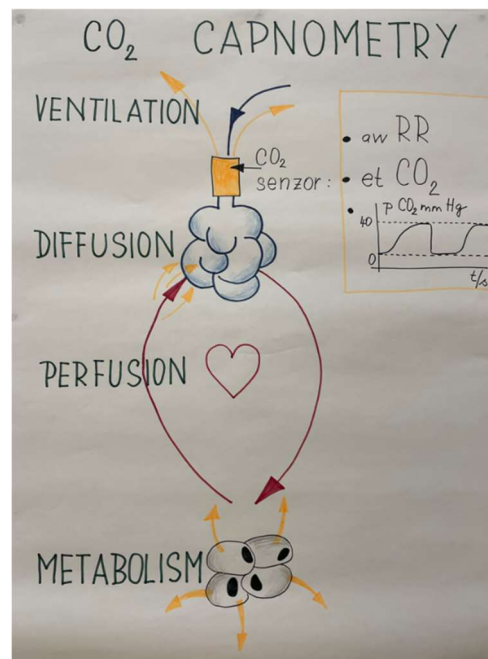 CO₂ CAPNOMETRY
VENTILATION
CO₂
senzor:
• aw RR
• et CO₂
• P CO₂ mm Hg
40
0
t/s
DIFFUSION
PERFUSION
METABOLISM